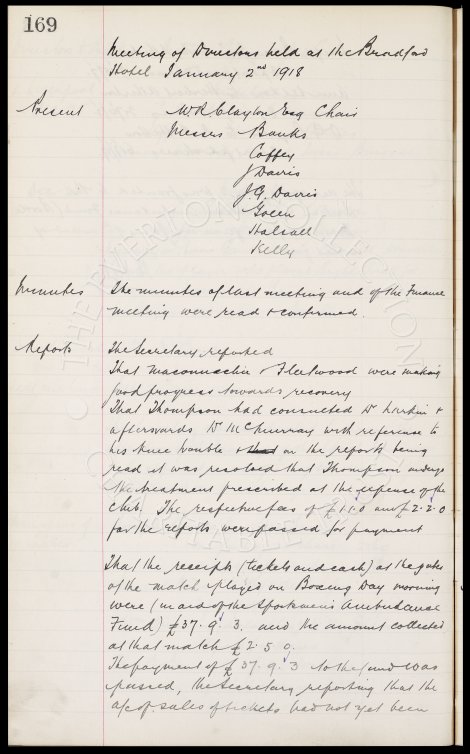 169
Meeting of Directors held at the Bradford
Hotel January 2nd 1918
Present W.R. Clayton Esq Chair
Messrs Banks
Coffey
J Davis
J.G. Davis
Green
Halsall
Kelly
Minutes The minutes of last meeting and of the Finance
meeting were read & confirmed.
Reports The Secretary reported
That Maconnachie & Fleetwood were making
good progress towards recovery
That Thompson had consulted Dr &
afterwards Dr McMurray with reference to
his knee trouble & that on the reports being
read it was resolved that Thompson undergo
the treatment prescribed at the expense of the
club. The respective fees of £1.1.0 and £2.2.0
for the reports were passed for payment
That the receipts (tickets and cash) at the gates
of the match played on Boxing Day morning
were (in aid of the Sportsmen's Ambulance
Fund) £37.9.3. and the amount collected
at that match £2.5.0.
The payment of £37.9.3 to the fund was
passed, the Secretary reporting that the
a/c of sales of tickets had not yet been
THE EVERTON COLLECTION